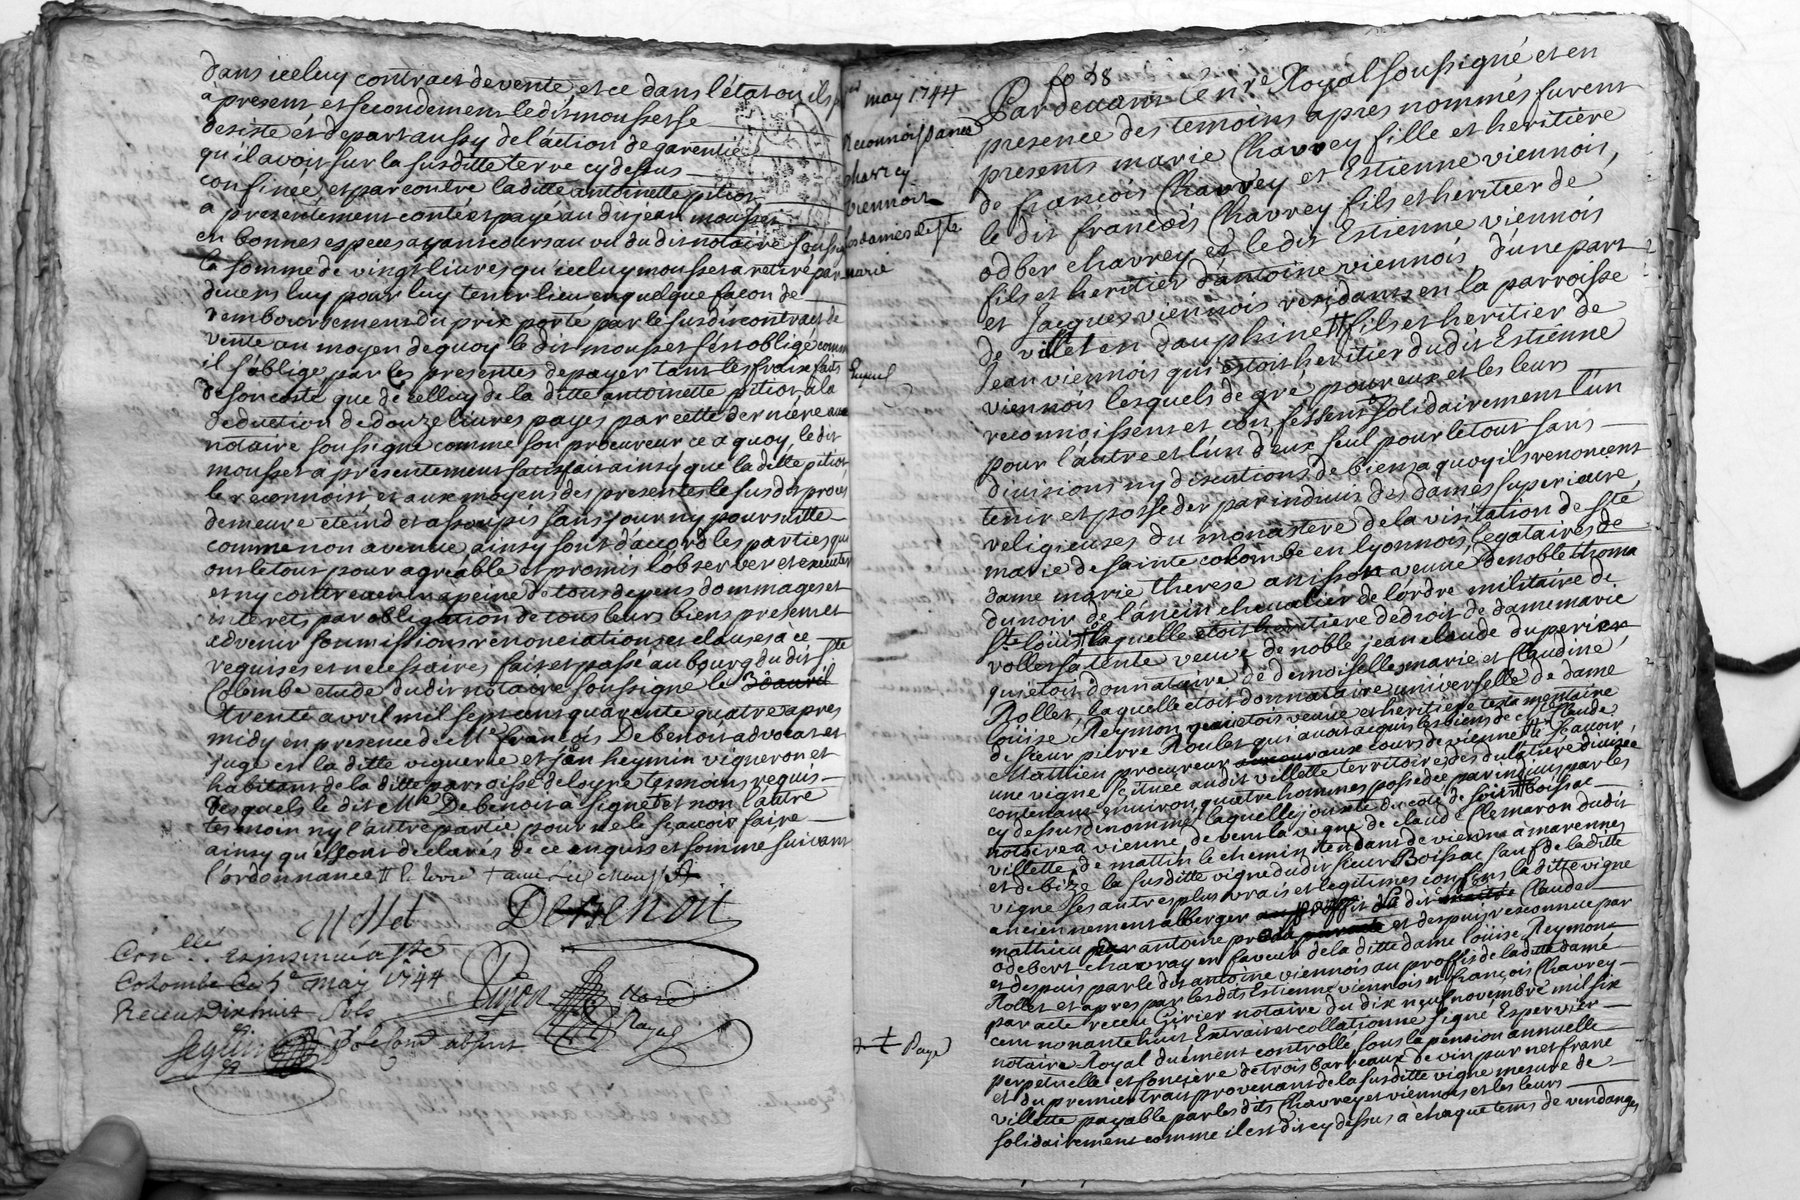 dans iceluy contract de vente et ce dans l'état ou ils
a present et secondement ledit mousset se
desiste et depart aussy de l'action de garentie
qu'il avoit sur la susditte terre cy dessus
confinée et par contre laditte antoinette pition
a presentement conté et payé au dit jean mousset
en bonnes especes ayant cours au vu du dit notaire soussigné
la somme de vingt livres qu'iceluy mousset a retiré par
devers luy pour luy tenir lieu en quelque façon de
remboursement du prix porté par le susdit contract de
vente au moyen de quoy le dit mousset s'est obligé comme
il s'oblige par les presentes de payer tant les fraix faits
de son coste que de celluy de la ditte antoinette pition a la
deduction de douze livres payés par cette derniere au
notaire soussigné comme son procureur ce a quoy le dit
mousset a presentement satisfait ainsy que la ditte pition
le reconnoist et aux moyens des presentes le susdit proces
demeure eteind et assoupis sans jour ny poursuitte
comme non avenue ainsy sont d'accord les parties qui
ont le tout pour agreable et promis l'observer et executer
et ny contrevenir a peine de tous depens dommages et
interets par obligation de tous leurs biens present et
advenir soumissions renonciations et clauses a ce
requises et necessaires fait et passé au bourg du dit Ste
Colombe etude dudit notaire soussigné le 30 avril
trente avril mil sept cent quarente quatre apres
midy en presence de Me françois Debenoit advocat et
juge en la ditte viguerie et jean heymin vigneron et
habitant de la ditte parroisse de loyre temoins requis
lesquels le dit Me Debenoit a signé et non l'autre
temoin ny l'autre partie pour ne le sçavoir faire
ainsy qu'ils ont declarés de ce enquis et sommé suivant
l'ordonnance
Debenoit
Conllé et insinué a Ste
Colombe ce 5e may 1744
Receu dixhuit sols
may 1744
Reconnoissance
Chavrey
Viennois
Les dames de Ste
marie
fo 58
Pardevant le nre Royal soussigné et en
presence des temoins apres nommés furent
presents marie Chavrey fille et heritière
de françois Chavrey et Estienne viennois,
le dit françois Chavrey fils et heritier de
odber chavrey et ledit Estienne viennois
fils et heritier d'antoine viennois d'une part
et Jacques viennois residants en la parroisse
de villette en dauphiné fils et heritier de
Jean viennois qui etoit heritier dudit Estienne
viennois lesquels de gré pour eux et les leurs
reconnoissent et confessent solidairement l'un
pour l'autre et l'un d'eux seul pour le tout sans
divisions ny discutions de biens a quoy ils renoncent
tenir et posseder par indivis des dames superieure,
religieuses du monastere de la visitation de Ste
marie de sainte colombe en lyonnois, legataires de
dame marie therese anisson veuve de noble thoma
dunoir de l'ancin chevalier de l'ordre militaire de
St. louis laquelle etoit heritiere de droit de dame marie
rollet sa tente veuve de noble jean claude duperier
qui etoit donnataire de demoiselles marie et Claudine
Rollet, laquelle etoit donnataire universelle de dame
louise Reymon veuve et heritiere testamentaire
de sieur pierre Roulet qui avoit acquis les biens de Me Claude
Matthieu procureur aux cours de vienne sçavoir,
une vigne scituée audit villette territoire des
contenant environ quatre hommes possedée par indivis par les
cy dessus denommés laquelle jouxte du coté de soir Boissac
notaire a vienne de vent la vigne de claude Clemaron dudit
villette, de mattin le chemin tendant de vienne a marennes
et de bize la susditte vigne dudit sieur Boissac sauf de laditte
vigne ses autres plus vrais et legitimes confins laditte vigne
anciennement alberger dit Claude
mathieu antoine et depuis reconnue par
odebert chavray en faveur de la ditte dame louise Reymon
et depuis par le dit antoine viennois au proffis de laditte dame
Rollet et apres par lesdits Estienne viennois et françois Chavrey
par acte receu Girier notaire du dix neuf novembre mil six
cent nonante huit Extrait et collationné signé Espervier
notaire Royal duement controllé sous la pension annuelle
perpetuelle et fonsiere de trois barreaux de vin pur net franc
et du premier trait provenant de la susditte vigne mesure de
villette payable par lesdits Chavrey et viennois et les leurs
solidairement comme il est dit cy dessus a chaque tems de vendanges